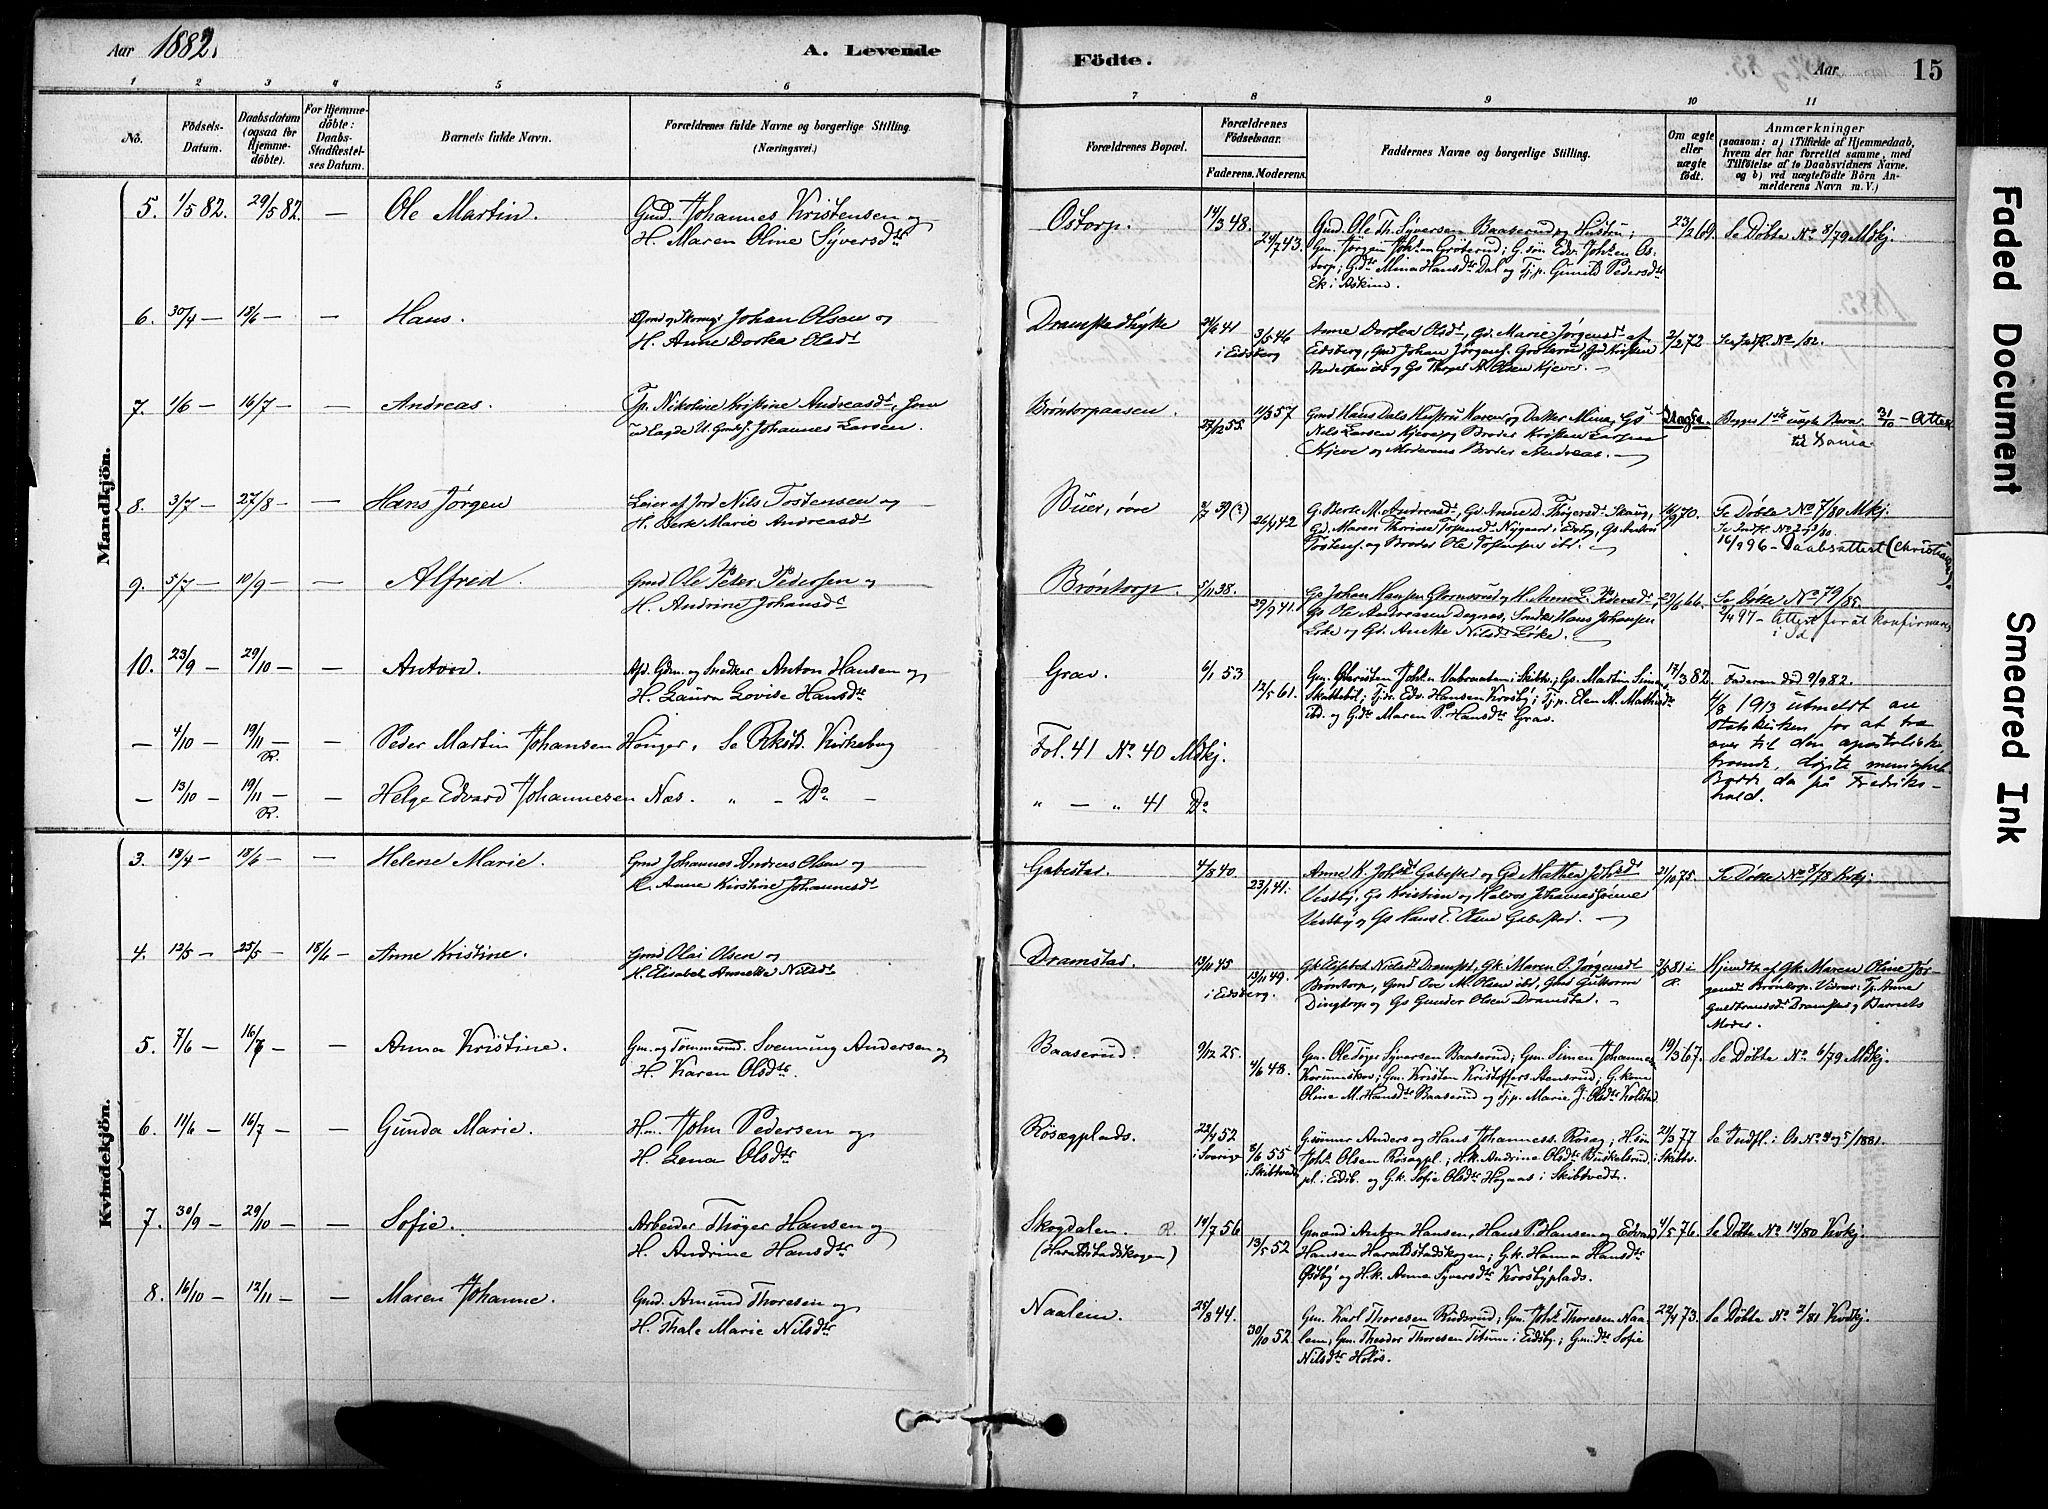 Aar 1882.
A. Levende
Födte.
Aar
15
1 2 3 4 5 6
7 8 9 10 11
No.
Födsels-
Datum.
Daabsdatum
(ogsaa for
Hjemme-
döbte).
For Hjemme-
döbte:
Daabs-
Stadfæstel-
ses Datum.
Barnets fulde Navn.
Forældrenes fulde Navne og borgerlige Stilling.
(Næringsvei.)
Forældrenes Bopæl.
Forældrenes
Födselsaar.
Faderens. Moderens.
Faddernes Navne og borgerlige Stilling.
Om ægte
eller
uægte
födt.
Anmærkninger
(saasom: a) i Tilfælde af Hjemmedaab,
hvem der har forrettet samme, med
Tilföielse af to Daabsvidners Navne.
og b) ved uægtefödte Börn An-
melderens Navn m. V.)
Mandkjön.
5. 1/5 82. 29/5 82. — Ole Martin. Gmd. Johannes Kristensen og
H. Maren Oline Syversdtr
Ostorp. 14/3 48. 24/7 43.
Gmd. Ole Th. Syversen Baaserud og Hustru;
Gm. Jörgen Joh.sen Gröterud; G. sön Edv. Joh.sen Os-
torp; G.dtr Mina Hansdtr Dal og Tjp. Gunild Pedersdtr
Ek i Askim.
23/2 69. Se Döbte No 8/79 Mdkj.
6. 30/4 — 18/6 — — Hans. Johan Olsen og
H. Anne Dorthea Olsdt
Dramstadhytte 21/6 41 i Eidsberg 3/5 46
Anne Dorthea Olsdt, Gd. Marie Jørgensdt af
Eidsberg, Gmd Johan Jørgens. Gröterud, Gs Kristen
2/2 72
7. 1/6 — 16/7 — — Andreas. Tp. Nikoline Kristine Andreasdt, som
udlagde U. Gmds. Johannes Larsen.
Brøntorpaasen. 27/12 55. 11/3 57
Gmd Hans Dals Hustru Karen og Datter Mina, Gs
Nils Larsen Kjeve og Broder Kristen Larsen
Kjeve og Moderens Broder Andreas. —
Uægte. Begges 1ste uægte Barn. 31/10 — Attest
8. 3/7 — 27/8 — — Hans Jørgen Leier af Jord Nils Tostensen og
H. Berte Marie Andreasdt
Buer, søre 2/7 39 (?) 26/4 42
G. Berte M. Andreasdt, Gd Anne D. Thøgersdt Skaug,
Gd. Maren Thorine Nygaard i Eidsbg, Gs Anton
Tostens. og Broder Ole ibd. —
16/9 70. Se Døbte No 7/80 Mkj.
16/9 96 — Daabsattest (Christiania).
9. 5/7 — 10/9 — — Alfred. Gmd Ole Peter Pedersen og
H. Andrine Johansdt
Brøntorp. 5/11 38. 29/9 41.
Gs Johan Hansen Glomsrud og H. Anne L. Pedersdt,
Gs Ole Andreassen Degnæs, Smed Hans Johansen
Löke og Gd. Anette Nilsdt Löke. —
29/6 66. Se Döbte No 79/85.
2/4 97 — Attest for at konfirmeres
i Id
10. 23/9 — 29/10 — — Anton. Afd. Gdm. og Snedker Anton Hansen og
H. Laura Lovise Hansdtr
Grav. 6/1 53 12/5 61.
Gm. Christen Joh.sen Vabraaten i Skibt.; Gs. Martin Simens.
Skattebøl; Tjdr. Edv. Hansen Krosby; Tjp. Elen M. Mathisdtr
ibd. og Gdtr Maren P. Hansdtr Grav.
17/3 82. Faderen död 9/9 82.
4/8 1913 utmeldt av
statskirken for at træ
over til den apostoliske
troende, døpte menighet.
Bodde da på Fredriks-
hald.
— 4/10 — 19/11 — R. Peder Martin Johansen Honger. Se Rkstd. Kirkebog
Fol. 41 No 40 Mdkj.
— 13/10 — 19/11 — R. Helge Edvard Johannesen Næs. " — Do —
" — " 41 Do
Kvindekjön.
3. 18/4 — 18/6 — — Helene Marie. Gmd Johannes Andreas Olsen og
H. Anne Kirstine Johannesdt
Gabestad. 4/8 40. 23/1 41.
Anne K. Johsdt Gabestad og Gd Mathea Johsdt
Vestby, Gs Kristian og Halvor Johannessønne
Vestby og Gs Hans E. Olsen Gabestad. —
21/10 75. Se Døbte No 8/78 Kvkj.
4. 12/5 — 25/5 — 18/6 — Anne Kristine. Gmd Olai Olsen og
H. Elisabet Annette Nilsdt
Dramstad. 13/11 45 i Eidsberg. 13/11 49.
Gk. Elisabet Nilsdt Dramstd, Gk. Maren O. Jørgensdt
Brøntorp, Gmd Ove M. Olsen ibd, Gmd Guttorm
Dingtorp og Gs Gunder Olsen Dramstad. —
3/5 81 i R. Hjemdt af Gk. Maren Oline Jør-
gensdt Brøntorp. Vidner: Tp. Anne
Guldbransdt Dramstad og Barnets
Moder.
5. 7/6 — 16/7 — — Anna Kristine. Gm. og Tömmermd. Svenning Andersen og
H. Karen Olsdtr.
Baaserud. 9/12 25. 4/6 48.
Gm. Ole Töger Syversen Baaserud; Gm. Simen Johannes.
Korumskov; Gm. Kristen Kristoffers. Aensrud; G. kone
Oline M. Hansdtr Baaserud og Tjp. Marie J. Olsdtr Kolstad
19/3 67. Se Döbte No 6/79 Mdkj.
6. 11/6 — 16/7 — — Gunda Marie. Hm. John Pedersen og
H. Lena Olsdtr
Rösægplads. 22/4 52 i Sverige 8/6 55 i Skibtvedt
G. sönner Anders og Hans Johanness. Rösæg; H. sön
Joh. Olsen Rösægpl.; H.k. Andrine Olsdtr Buskelsrud,
pl. i Eidsb. og G.k. Sofie Olsdtr Hogaas i Skibtvedt.
21/3 77 i Skibtv. Se Indfl.: Os. No 4 og 5/1881.
7. 30/9 — 29/10 — — Sofie. Arbeider Thöger Hansen og
H. Andrine Hansdtr
Skogdalen. R.
(Haraldstadskogen)
14/7 56 13/5 52.
Gmænd Anton Hansen, Hans P. Hansen og Edvard
Hansen Haraldstadskogen; G.k. Hanna Hansdtr
Östby og H.k. Anne Syversdtr Krosbyplads.
4/5 76. Se Döbte No 14/80 Kvkj.
8. 16/10 — 12/11 — — Maren Johanne. Gmd. Amund Thoresen og
H. Thale Marie Nilsdtr
Naalem. 25/8 44. 30/10 52.
Gm. Karl Thoresen Ruderud; Gm. Joh. Thoresen Naa-
lem; Gm. Theodor Thoresen Titum i Eidsbg.; Gm.dtr Sofie
Nilsdtr Holös.
22/4 73. Se Döbte No 2/81 Kvdkj.
Faded Document
Smeared Ink